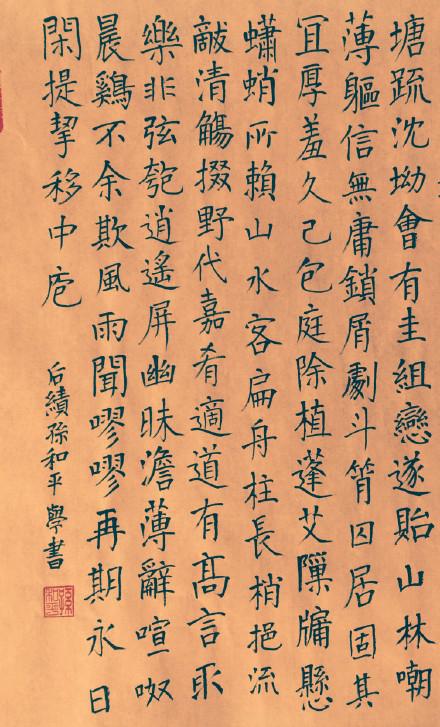 塘疏沈坳會有圭組戀遂貽山林嘲
薄軀信無庸鎖屑劇斗筲囚居固其
冝厚羞久已包庭除植蓬艾隟牖懸
蠨蛸所賴山水客扁舟柱長梢挹流
敵清觴掇野代嘉肴適道有髙言取
樂非弦匏逍遙屏幽昧澹薄辭喧呶
晨鷄不余欺風雨聞嘐嘐再期永日
閑提挈移中庖
后績孫和平學書